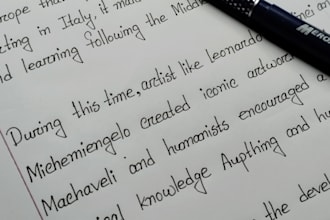 rope than
rting in Italy, it ma
nd learning following the Midd
During this time, artist like Leonardo inci an
Michemiengelo created iconic artwor
Machaveli and humanists encouraged a
ical knowledge Aupthing and hu
the develo